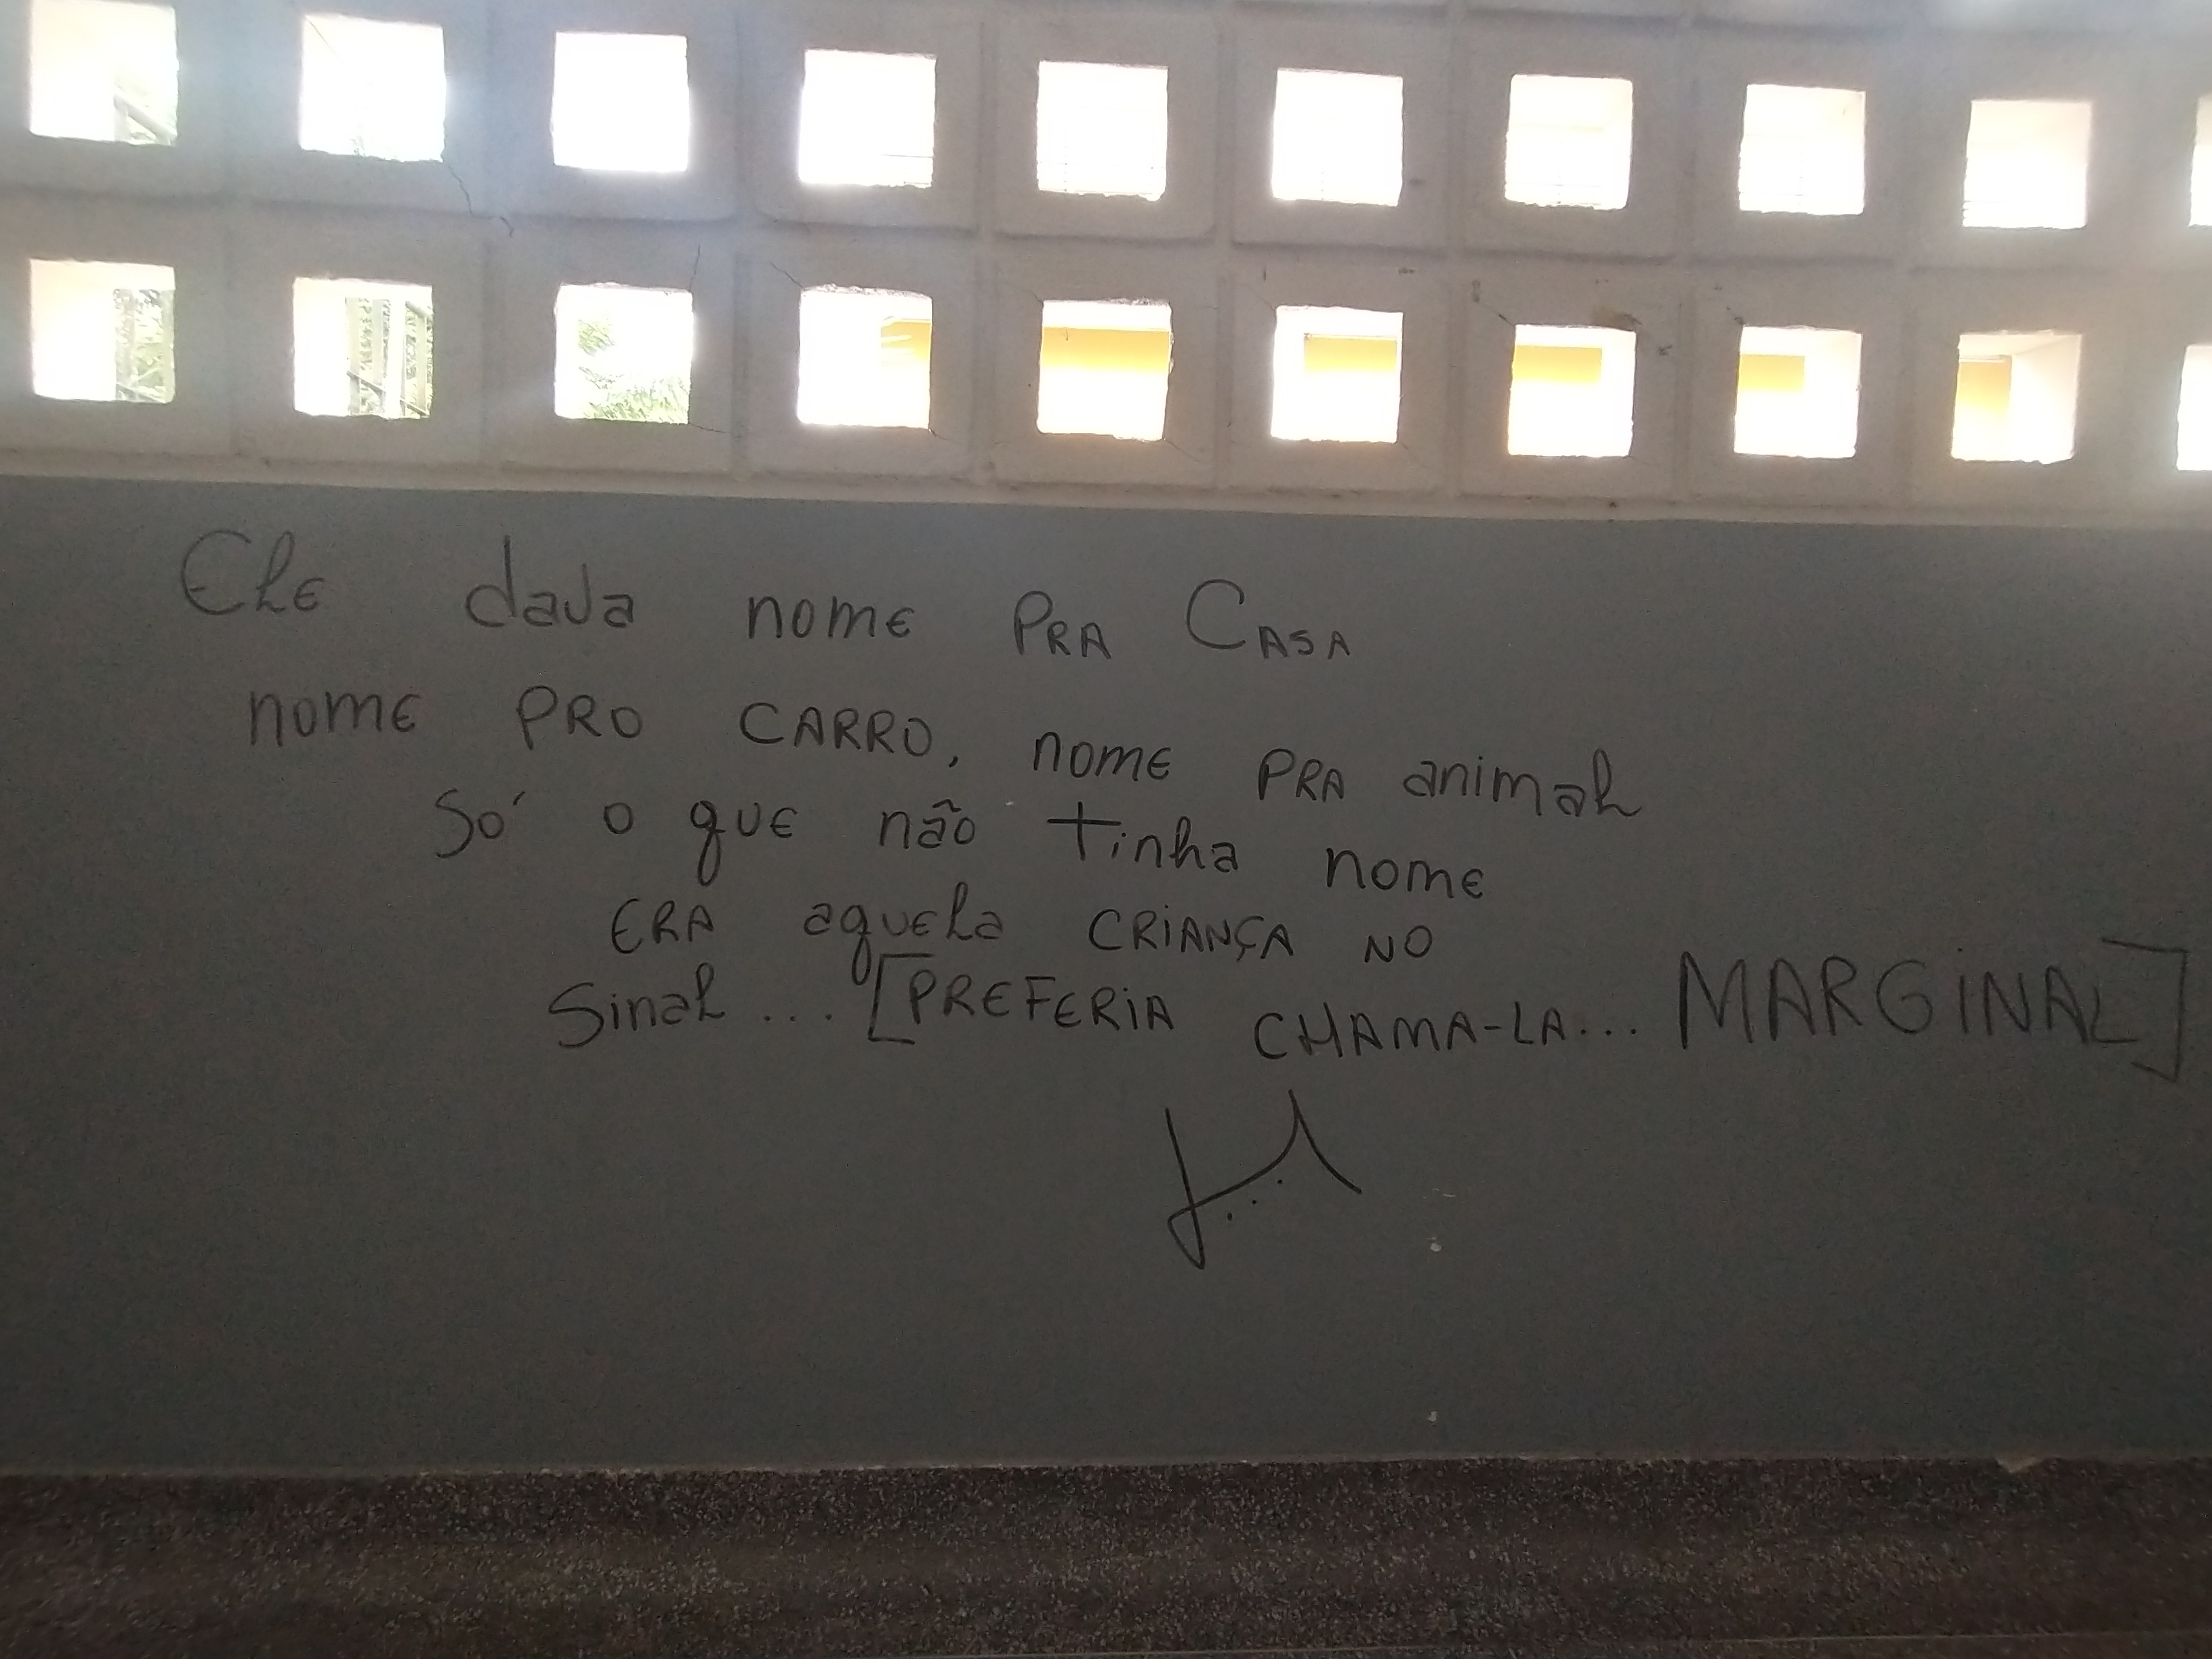 Ele dava nome PRA CASA
nome PRO CARRO, nome PRA animal
Só o que não tinha nome
ERA aquela CRIANÇA NO
Sinal... [PREFERIA CHAMA-LA... MARGINAL]